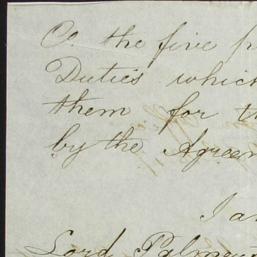 the five p
Duties which
them for t
by the Agree
I a
Lord Palmer